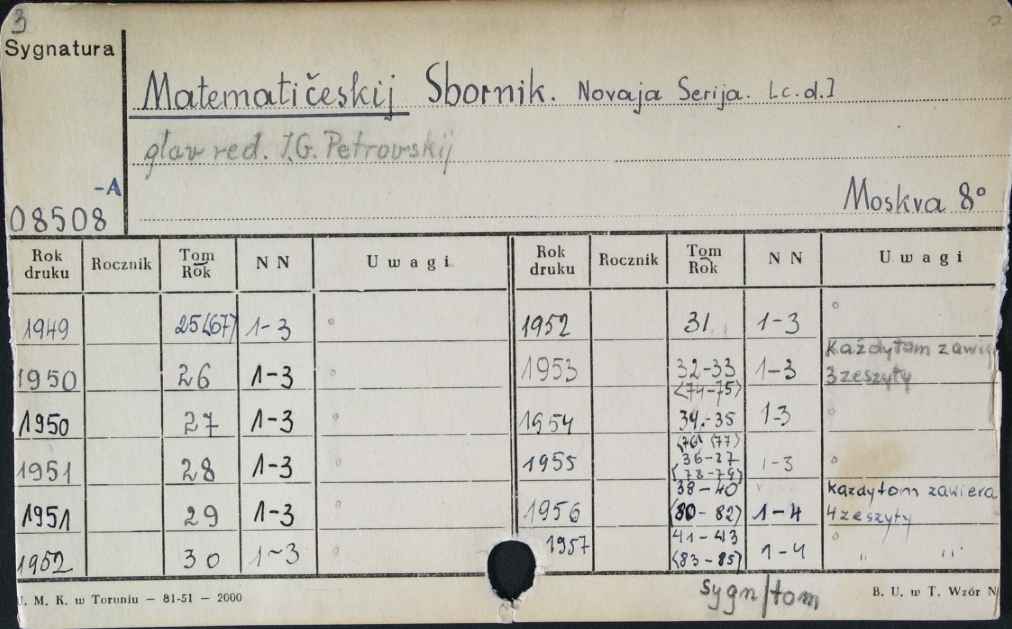 3
Sygnatura
Matematičeskij Sbornik. Novaja Serija. [c.d.]
glav red. I.G. Petrovskij
-A
08508
Moskva 8°
Rok druku Rocznik Tom Rok N N Uwagi Rok druku Rocznik Tom Rok N N Uwagi
1949 25(67) 1-3 1952 31 1-3
1950 26 1-3 1953 32-33 (74-75) 1-3 Każdy tom zawie 3 zeszyty
1950 27 1-3 1954 34.-35 (76) (77) 1-3
1951 28 1-3 1955 36-37 (78-79) 1-3
1951 29 1-3 1956 38-40 (80-82) 1-4 każdy tom zawiera 4 zeszyty
1952 30 1-3 1957 41-43 (83-85) 1-4 " "
sygn/tom
U. M. K. w Toruniu — 81-51 — 2000
B. U. w T. Wzór N